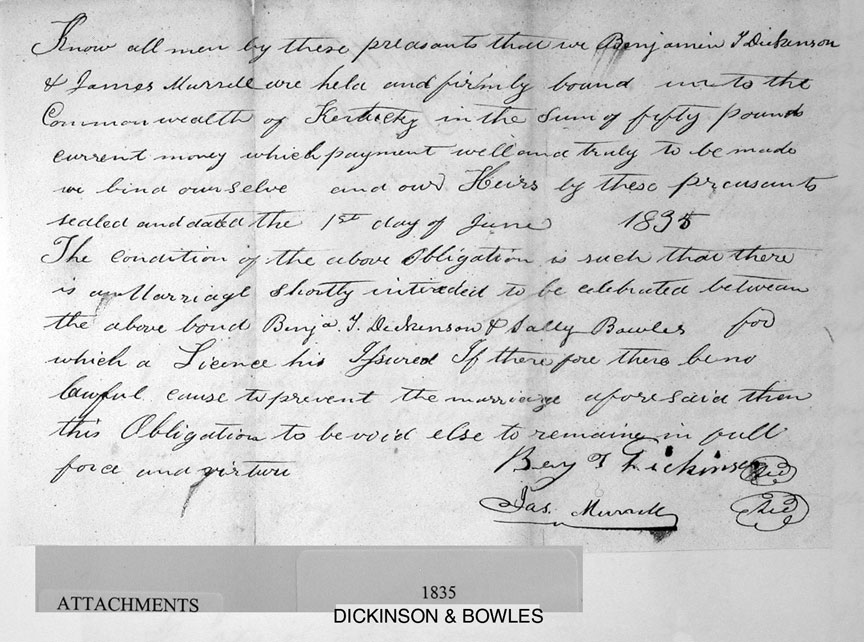 Know all men by these preasants that we Benjamin T Dickenson
& James Murrell are held and firmly bound unto the
Commonwealth of Kentucky in the Sum of fifty pounds
current money which payment well and truly to be made
we bind ourselve and our Heirs by these preasants
sealed and dated the 1st day of June 1835
The condition of the above Obligation is such that there
is a Marriage shortly intended to be celebrated between
the above bond Benja. T. Dickenson & Sally Bowles for
which a Licence his Issured If there fore there be no
lawful cause to prevent the marriage afore said then
this Obligation to be void else to remaine in full
force and virtue
Benj T Dickinson
Jas. Murrell
ATTACHMENTS
1835
DICKINSON & BOWLES